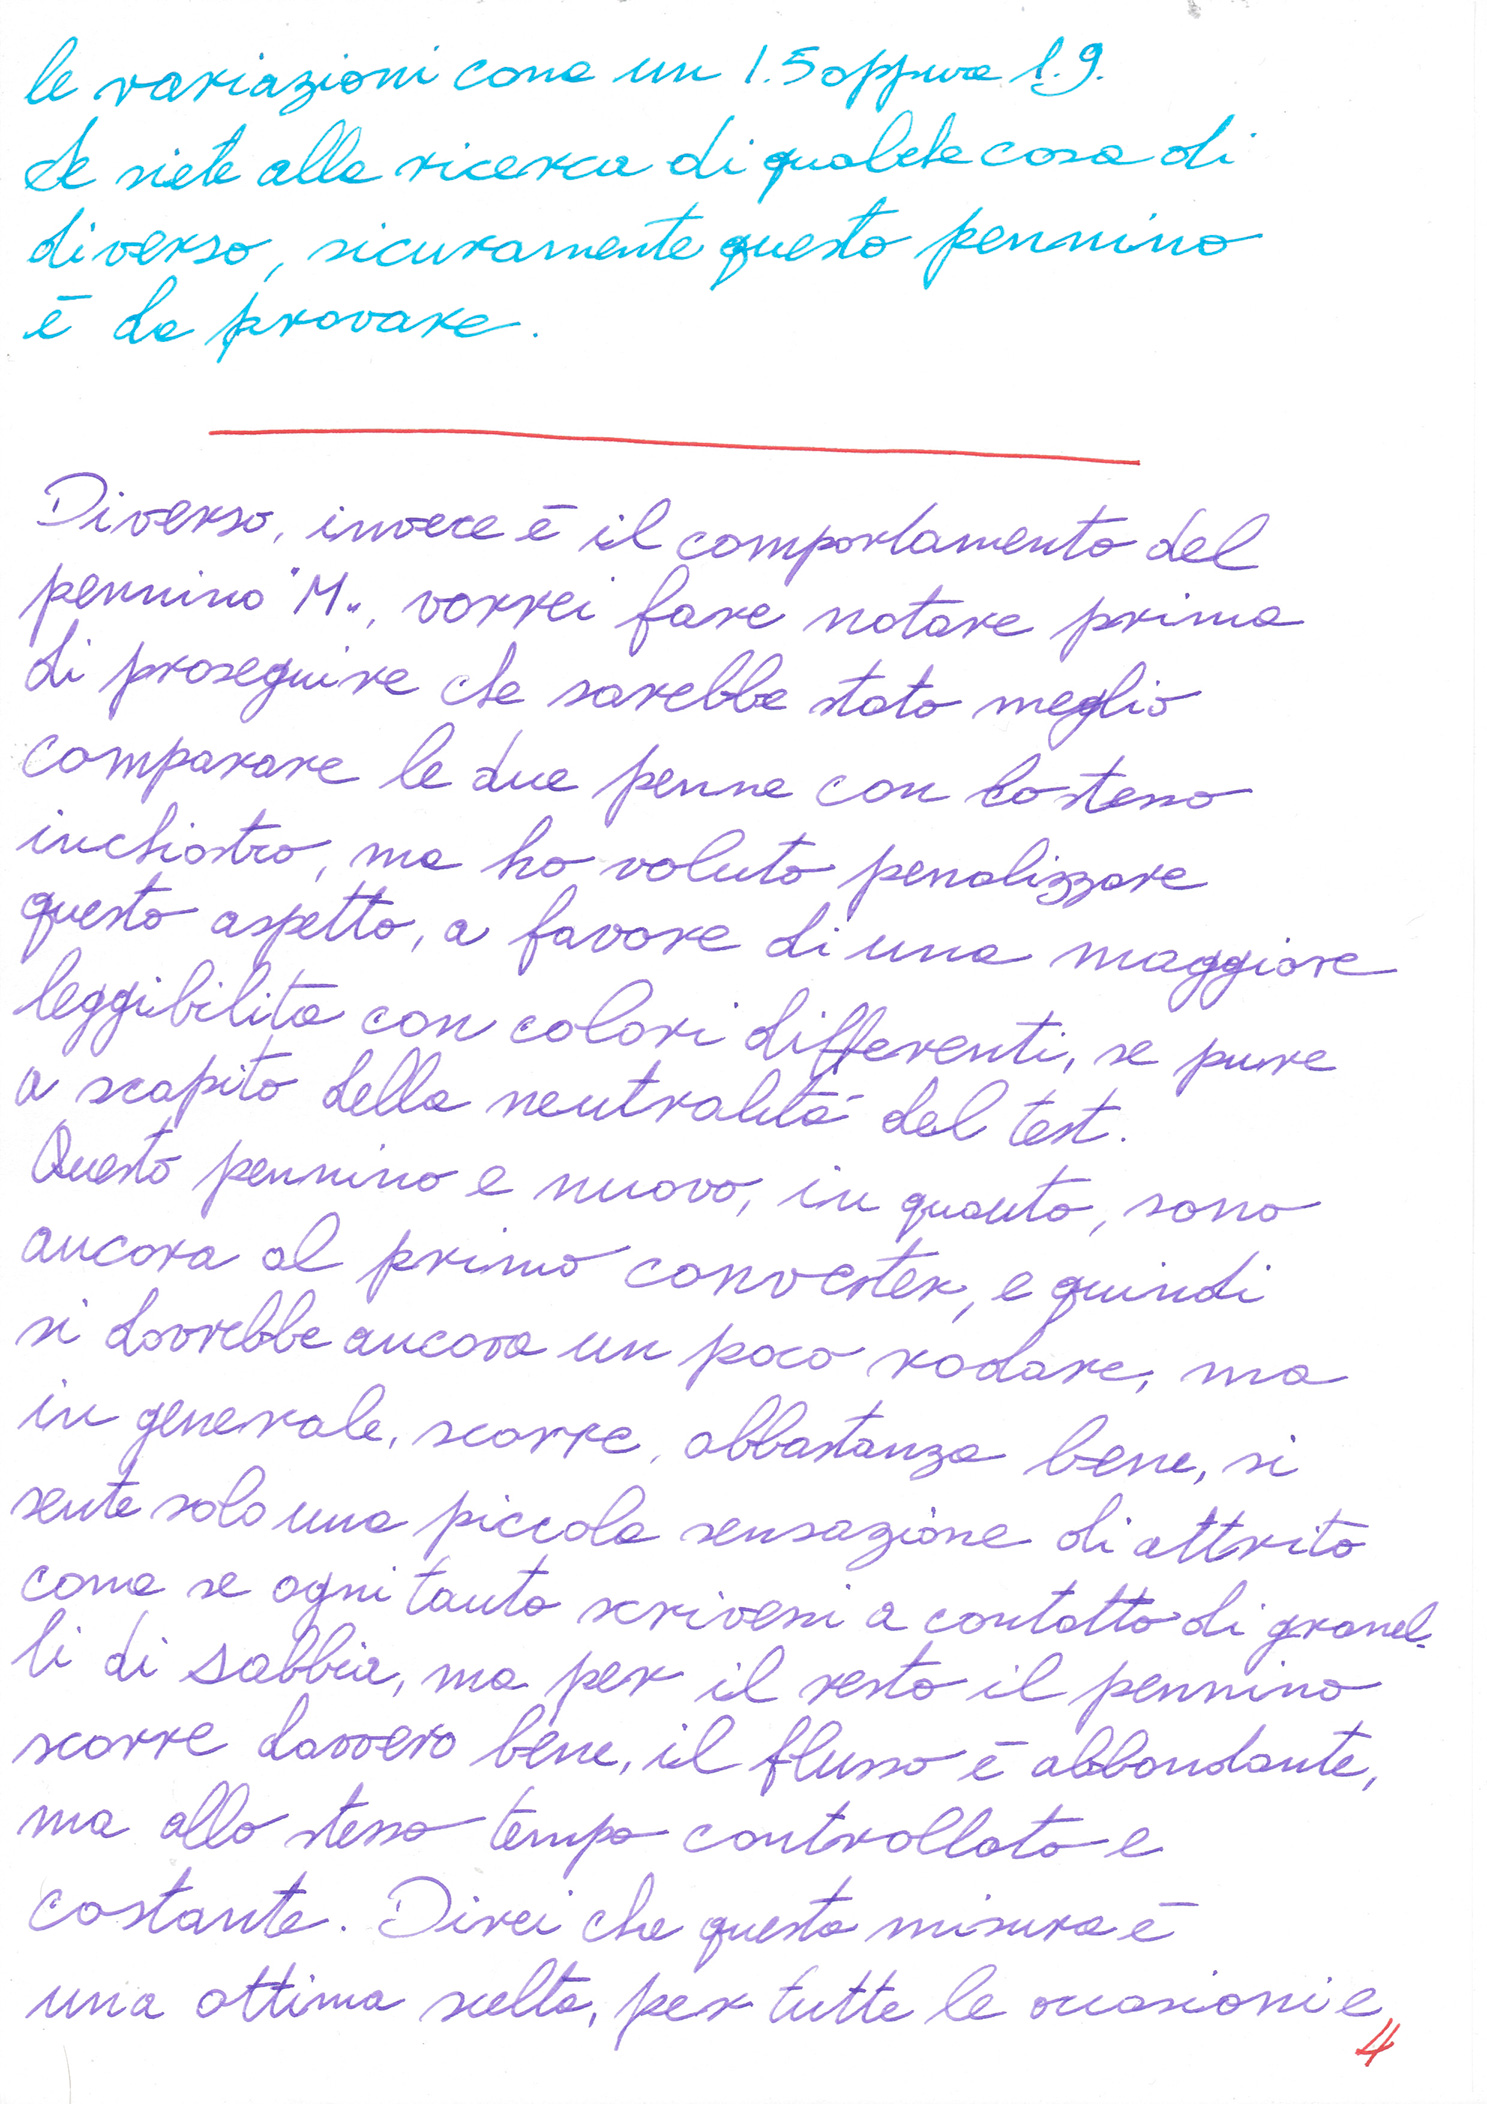 le variazioni come un 1.5 oppure 1.9.
Se siete alla ricerca di qualche cosa di
diverso, sicuramente questo pennino
è da provare.
Diverso, invece è il comportamento del
pennino "M", vorrei fare notare prima
di proseguire che sarebbe stato meglio
comparare le due penne con lo stesso
inchiostro, ma ho voluto penalizzare
questo aspetto, a favore di una maggiore
leggibilità con colori differenti, se pure
a scapito della neutralità del test.
Questo pennino e nuovo, in quanto, sono
ancora al primo converter, e quindi
si dovrebbe ancora un poco rodare, ma
in generale, scorre, abbastanza bene, si
sente solo una piccola sensazione di attrito
come se ogni tanto scrivessi a contatto di granel-
li di sabbia, ma per il resto il pennino
scorre davvero bene, il flusso è abbondante,
ma allo stesso tempo controllato e
costante. Direi che questa misura è
una ottima scelta, per tutte le occasioni e
4